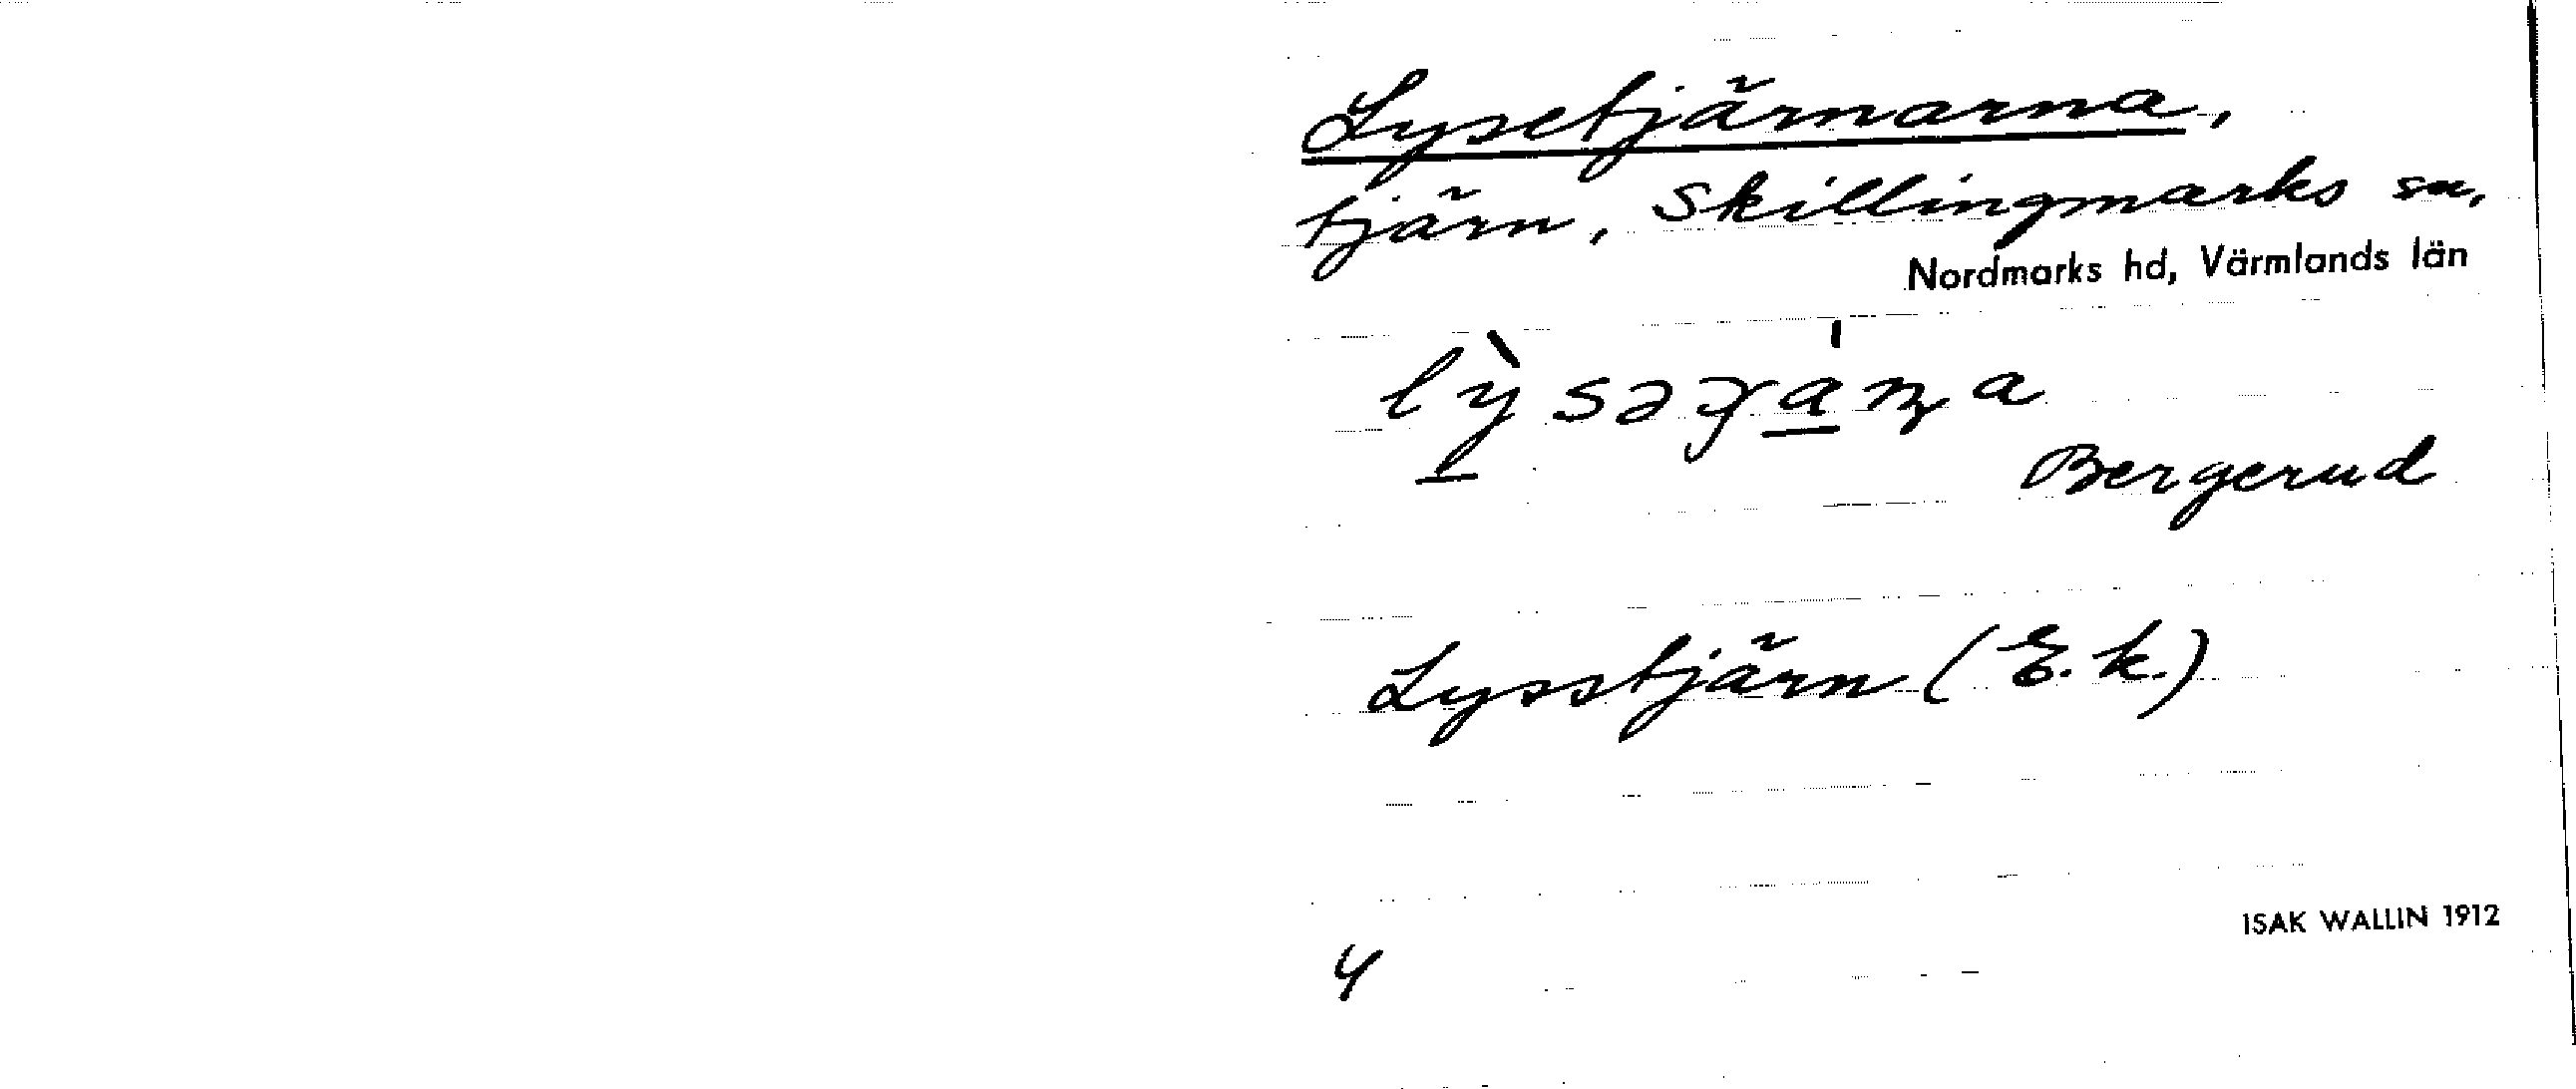 Lysetjärnarna,
tjärn, Skillingmarks sn,
Nordmarks hd, Värmlands län
Bergerud
Lysstjärn (E.k.)
ISAK WALLIN 1912
4